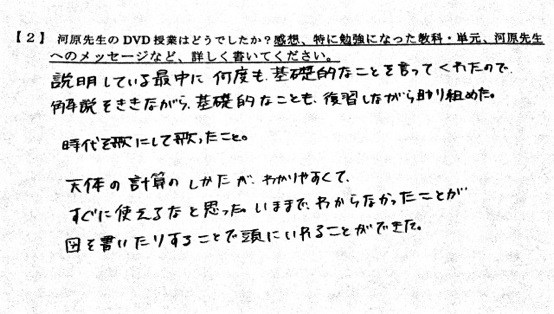 【2】河原先生のDVD授業はどうでしたか？感想、特に勉強になった教科・単元、河原先生
へのメッセージなど、詳しく書いてください。
説明している最中に何度も、基礎的なことを言ってくれたので、
解説をききながら、基礎的なことも、復習しながら取り組めた。
時代を歌にして歌ったこと。
天体の計算のしかたが、わかりやすくて、
すぐに使えるなと思った。いままで、わからなかったことが
図を書いたりすることで頭にいれることができた。